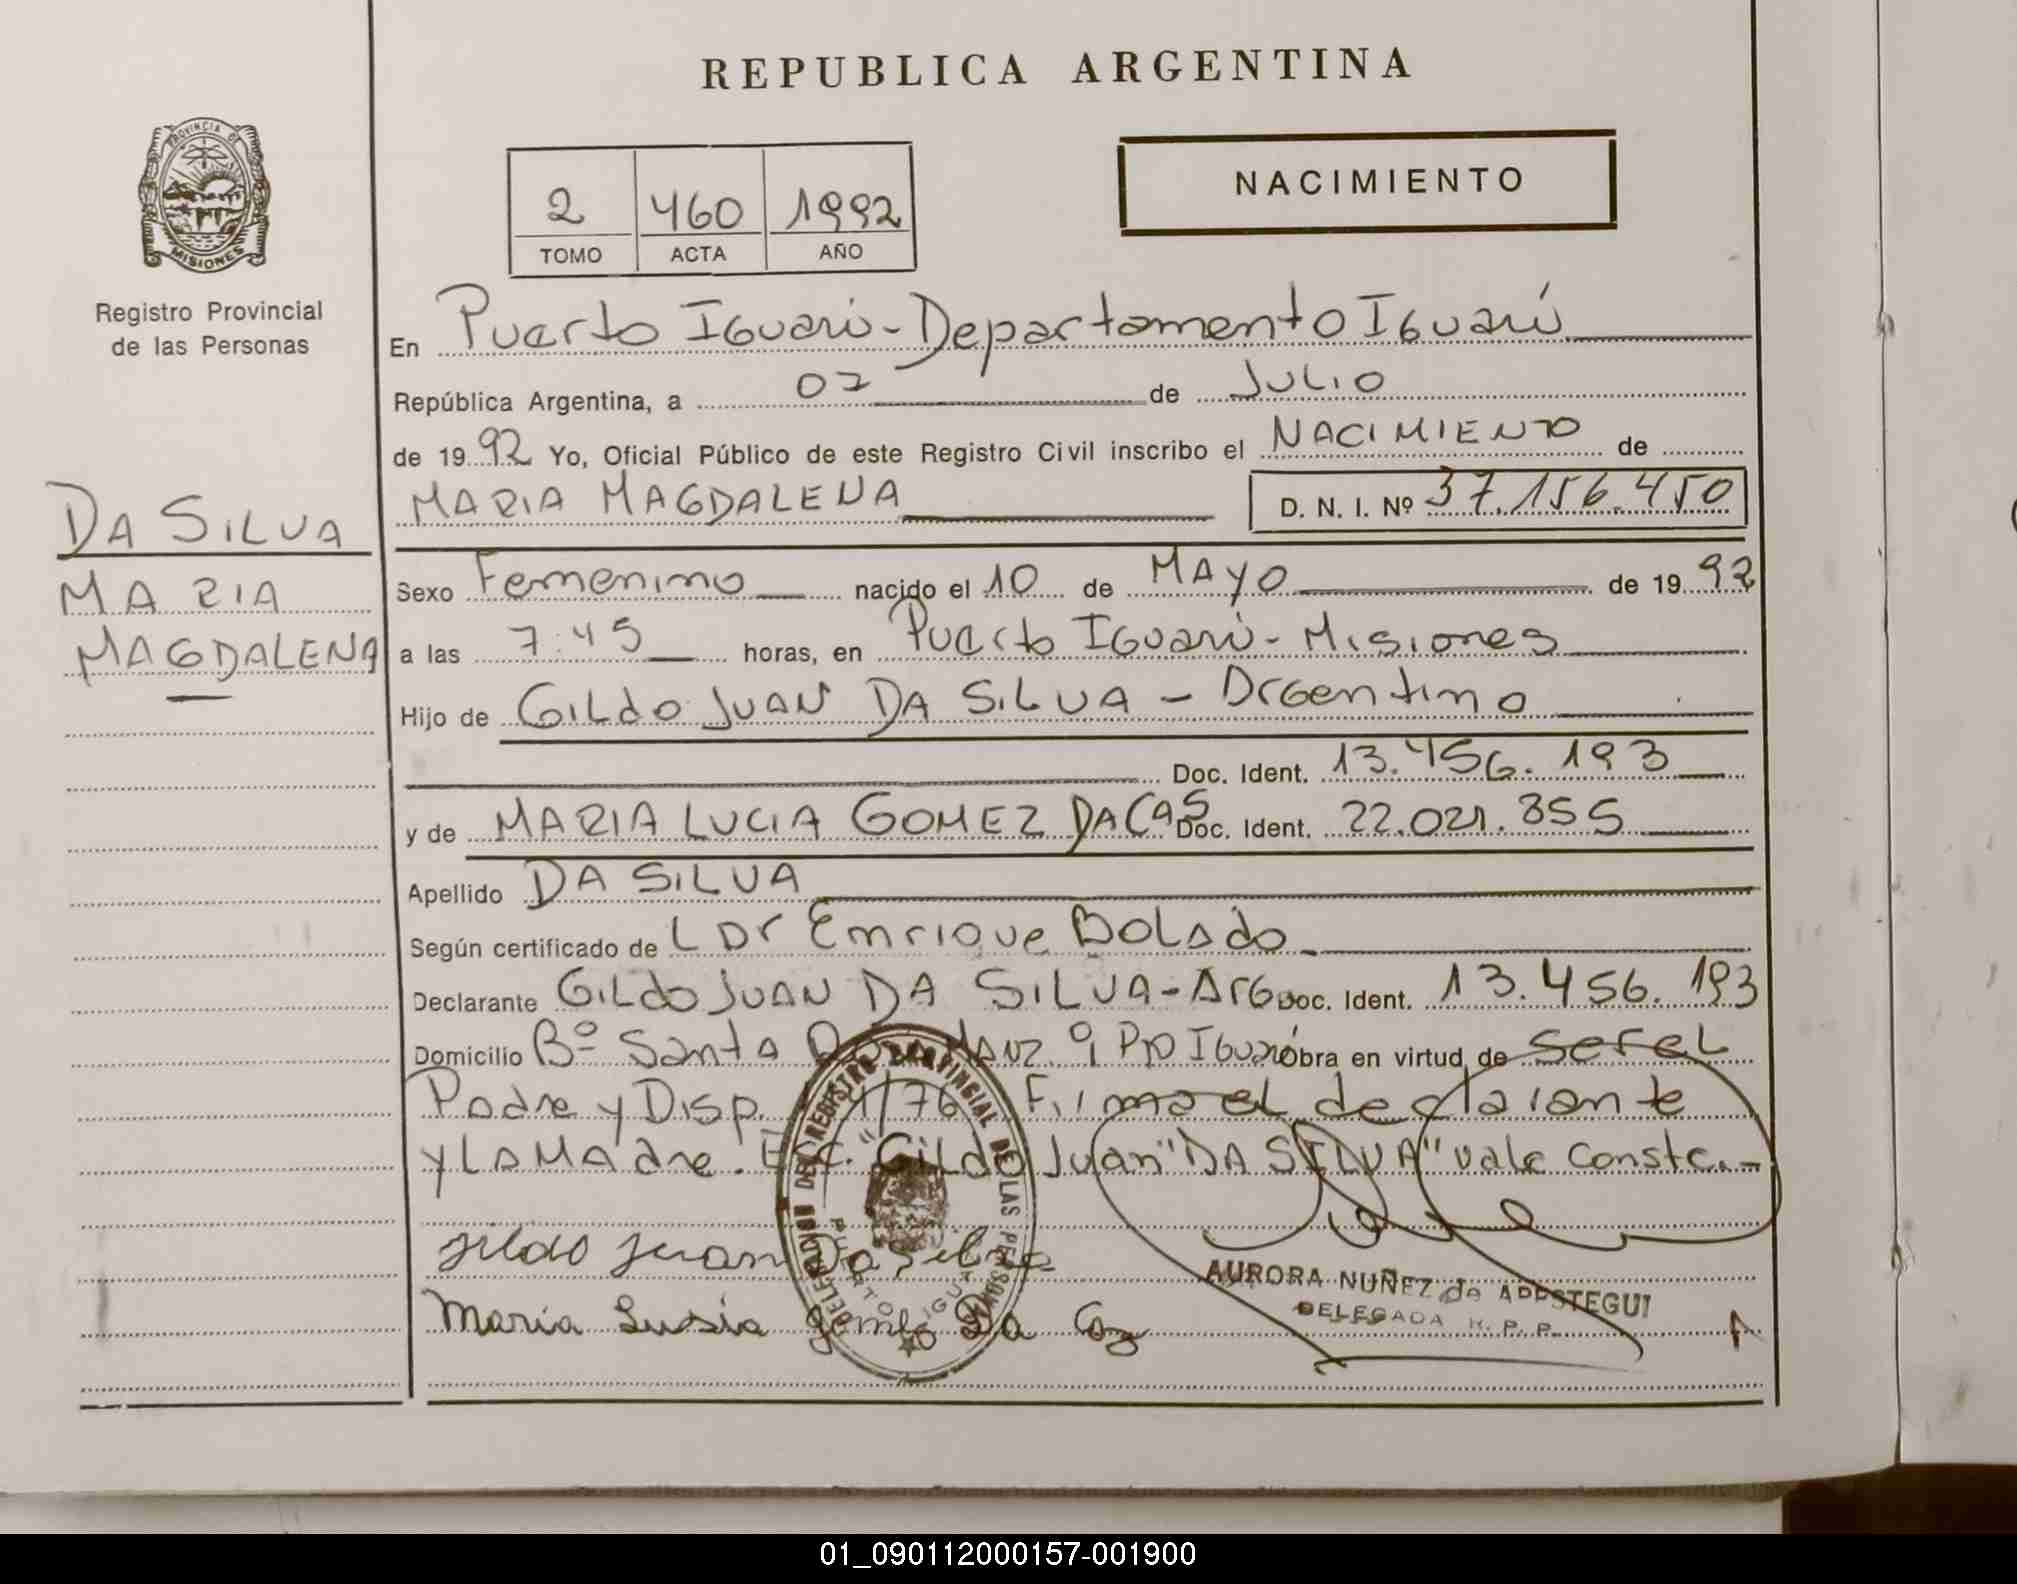 REPUBLICA ARGENTINA
PROVINCIA DE
MISIONES
Registro Provincial
de las Personas
NACIMIENTO
2 460 1992
TOMO ACTA AÑO
En Puerto Iguazú - Departamento Iguazú
República Argentina, a 07 de Julio
de 1992 Yo, Oficial Público de este Registro Civil inscribo el NACIMIENTO de
MARIA MAGDALENA D. N. I. Nº 37.156.450
DA SILVA
MARIA
MAGDALENA
Sexo Femenino nacido el 10 de MAYO de 1992
a las 7:45 horas, en Puerto Iguazú - Misiones
Hijo de GILdo JUAN DA SILVA - Argentino
Doc. Ident. 13.456.193
y de MARIA LUCIA GOMEZ DA Doc. Ident. 22.021.855
Apellido DA SILVA
Según certificado de L Dr Enrique BOLAdo
Declarante GILdo JUAN DA SILVA - Arg Doc. Ident. 13.456.193
Domicilio Bº Santa MANZ. 9 Pto Iguazú Obra en virtud de ser el
Padre y Disp. /76 Firma el declarante
y LA MAdre. "Gildo Juan" DA SILVA" vale Conste.-
Gildo Juan Da Silva
Maria Lusia Da
DELEGACION DEL REGISTRO PROVINCIAL DE LAS PERSONAS
AURORA NUÑEZ de
DELEGADA R. P. P.
01_090112000157-001900